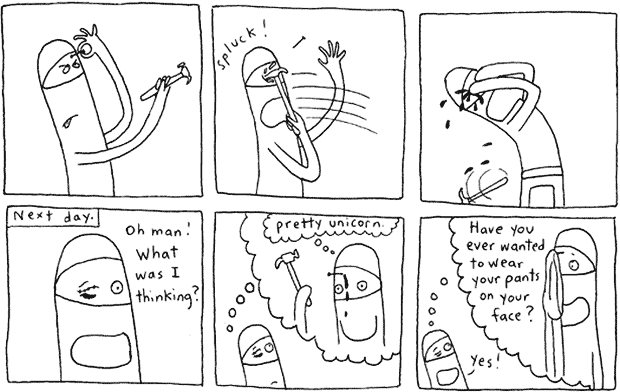 spluck!
Next day.
Oh man!
What
was I
thinking?
pretty unicorn.
Have you
ever wanted
to wear
your pants
on your
face?
Yes!